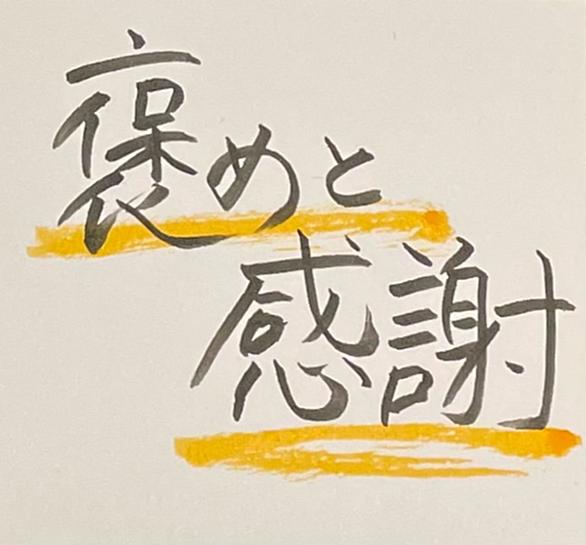 褒めと
感謝